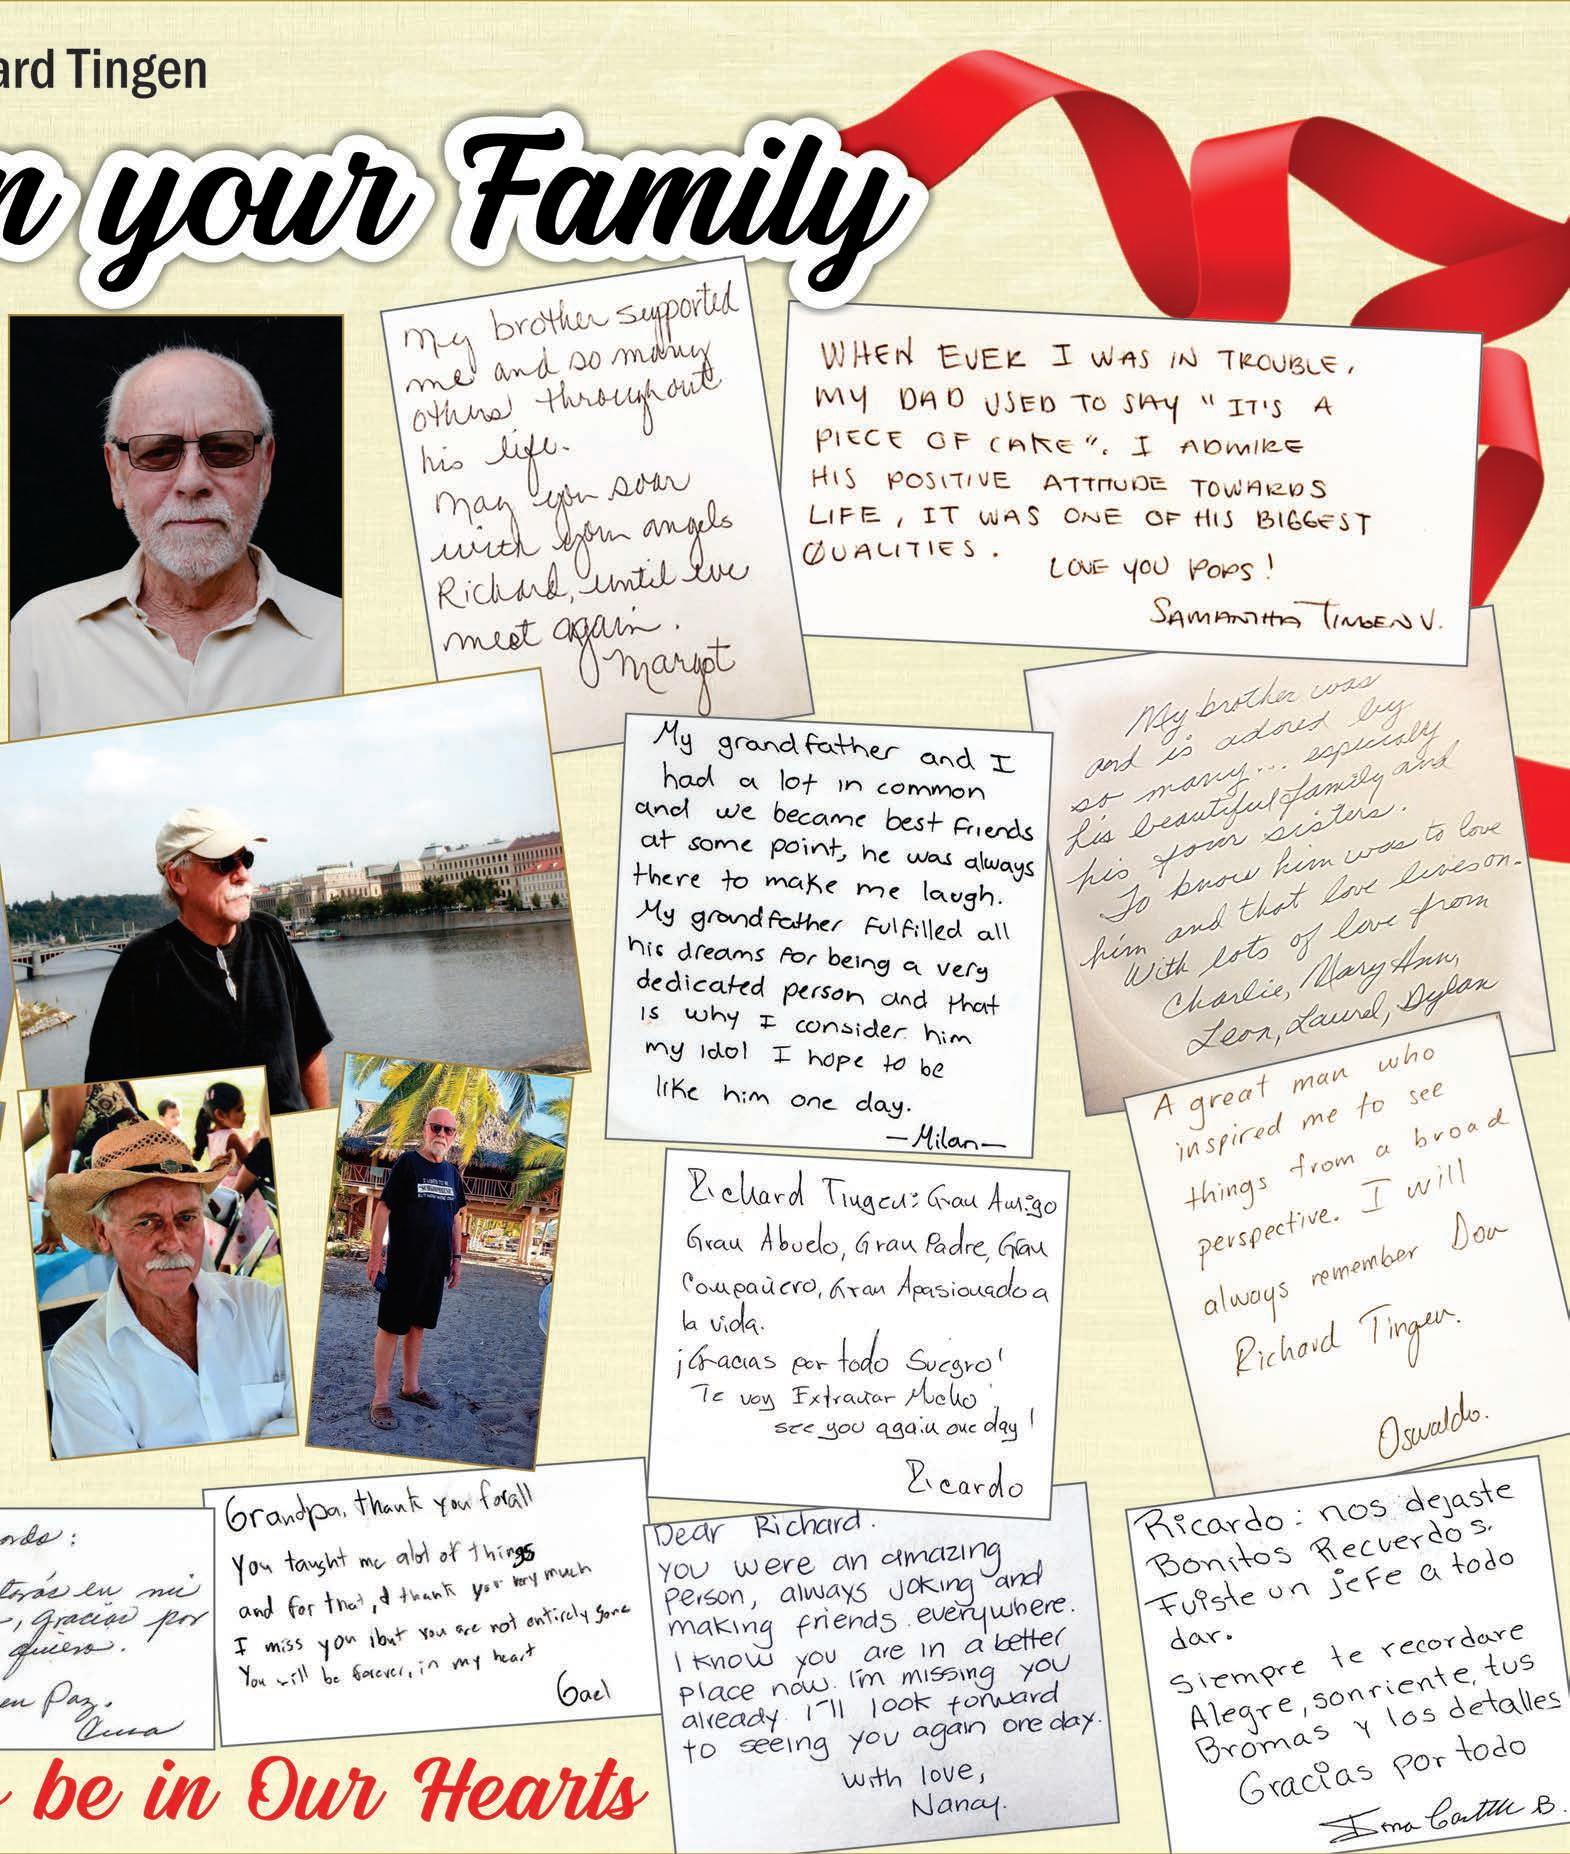 ard Tingen
n your Family
My brother supported
me and so many
others throughout
his life.
May you soar
with your angels
Richard, until we
meet again.
Margot
WHEN EVER I WAS IN TROUBLE,
MY DAD USED TO SAY "IT'S A
PIECE OF CAKE". I ADMIRE
HIS POSITIVE ATTITUDE TOWARDS
LIFE, IT WAS ONE OF HIS BIGGEST
QUALITIES.
LOVE YOU POPS!
SAMANTHA TINGEN V.
My brother was
and is adored by
so many... especially
his beautiful family and
his four sisters.
To know him was to love
him and that love lives on.
With lots of love from
Charlie, Mary Ann,
Leon, Laurel, Dylan
My grandfather and I
had a lot in common
and we became best friends
at some point, he was always
there to make me laugh.
My grandfather fulfilled all
his dreams for being a very
dedicated person and that
is why I consider him
my idol I hope to be
like him one day.
—Milan—
A great man who
inspired me to see
things from a broad
perspective. I will
always remember Don
Richard Tingen.
Oswaldo.
Richard Tingen: Gran Amigo
Gran Abuelo, Gran Padre, Gran
Compañero, Gran Apasionado a
la vida.
¡Gracias por todo Suegro!
Te voy Extrañar Mucho
see you again one day!
Ricardo
ords:
tarás en mi
-, gracias por
quiero.
en Paz.
Grandpa, thank you for all
You taught me alot of things
and for that, I thank you very much
I miss you, but you are not entirely gone
You will be forever, in my heart
Gael
Dear Richard.
you were an amazing
person, always joking and
making friends everywhere.
I know you are in a better
place now. I'm missing you
already. I'll look forward
to seeing you again one day.
with love,
Nancy.
Ricardo: nos dejaste
Bonitos Recuerdos.
Fuiste un jefe a todo
dar.
Siempre te recordare
Alegre, sonriente, tus
Bromas y los detalles
Gracias por todo
be in Our Hearts